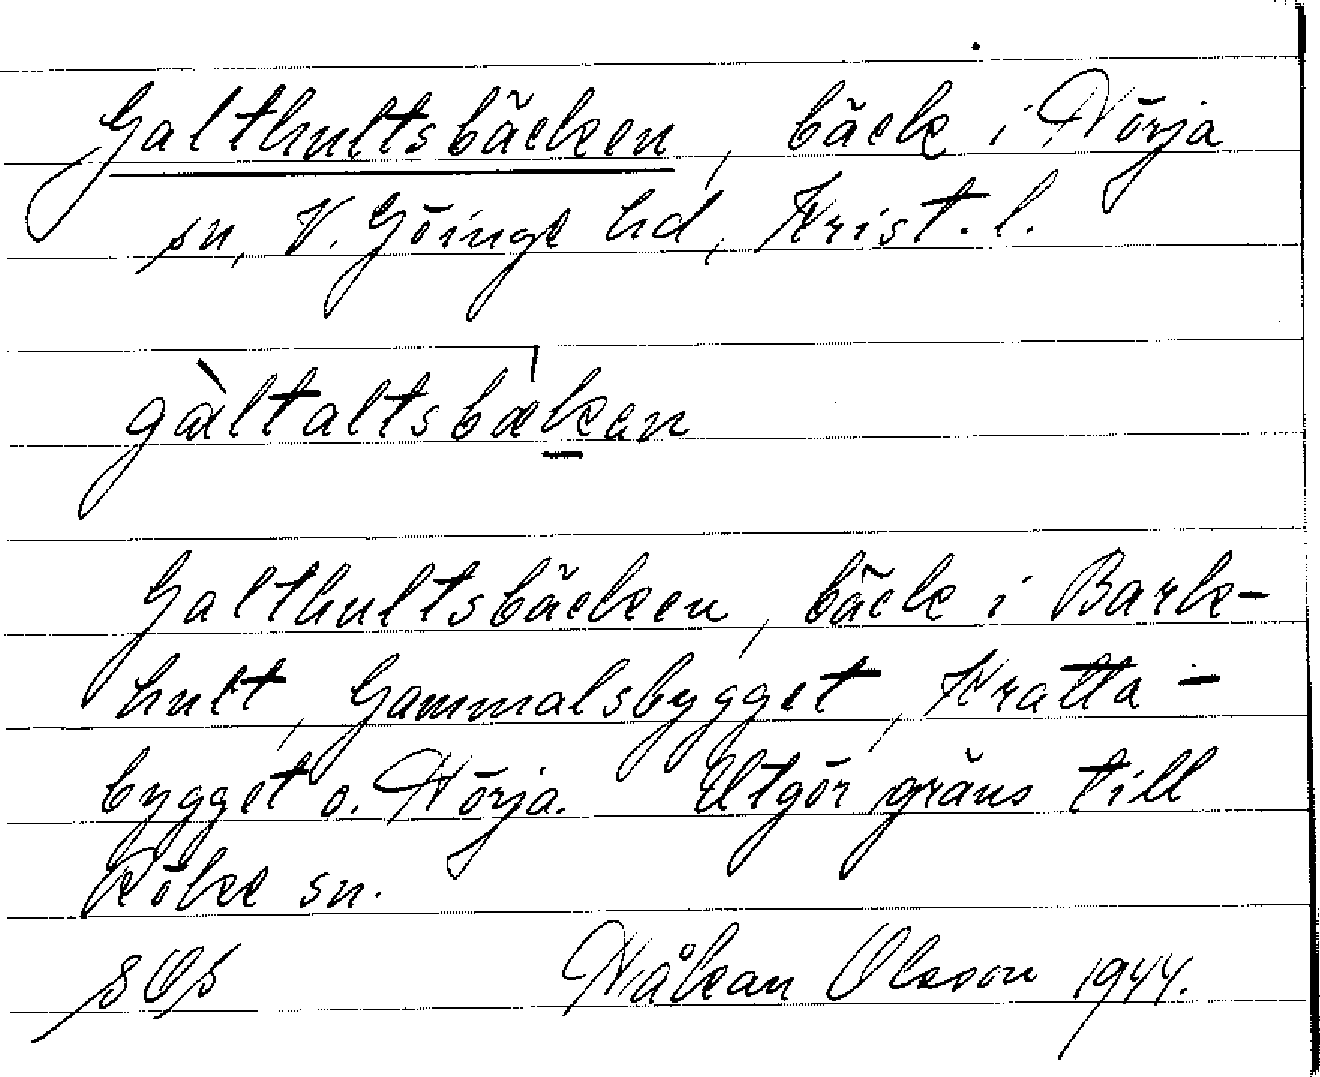 Galthultsbäcken, bäck i Nörja
sn, V. Göinge hd, Krist. l.
gàltaltsbækan
Galthultsbäcken, bäck i Bark-
hult, Gammalsbygget, Kratta-
bygget o. Nörja. Utgör gräns till
Röke sn.
Håkan Olsson 1944.